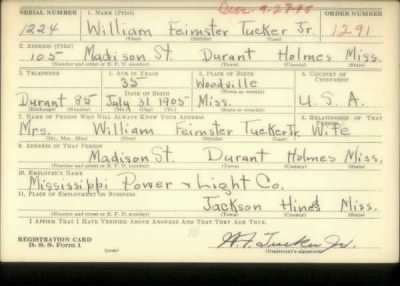 SERIAL NUMBER 1. NAME (Print) ORDER NUMBER
1224 William Feimster Tucker Jr. 1291
2. ADDRESS (Print)
105 Madison St. Durant Holmes Miss.
(Number and street or R. F. D. number) (Town) (County) (State)
3. TELEPHONE 4. AGE IN YEARS 5. PLACE OF BIRTH 6. COUNTRY OF CITIZENSHIP
35 Woodville
DATE OF BIRTH
Durant 85 July 31 1905 Miss. U. S. A.
(Exchange) (Number) (Mo.) (Day) (Yr.) (State or country)
7. NAME OF PERSON WHO WILL ALWAYS KNOW YOUR ADDRESS 8. RELATIONSHIP OF THAT PERSON
Mrs. William Feimster Tucker Jr. Wife
(Mr., Mrs., Miss) (First) (Middle) (Last)
9. ADDRESS OF THAT PERSON
Madison St. Durant Holmes Miss.
(Number and street or R. F. D. number) (Town) (County) (State)
10. EMPLOYER'S NAME
Mississippi Power & Light Co.
11. PLACE OF EMPLOYMENT OR BUSINESS
Jackson Hinds Miss.
(Number and street or R. F. D. number) (Town) (County) (State)
I AFFIRM THAT I HAVE VERIFIED ABOVE ANSWERS AND THAT THEY ARE TRUE.
REGISTRATION CARD
D. S. S. Form 1 W. F. Tucker Jr.
(Registrant's signature)